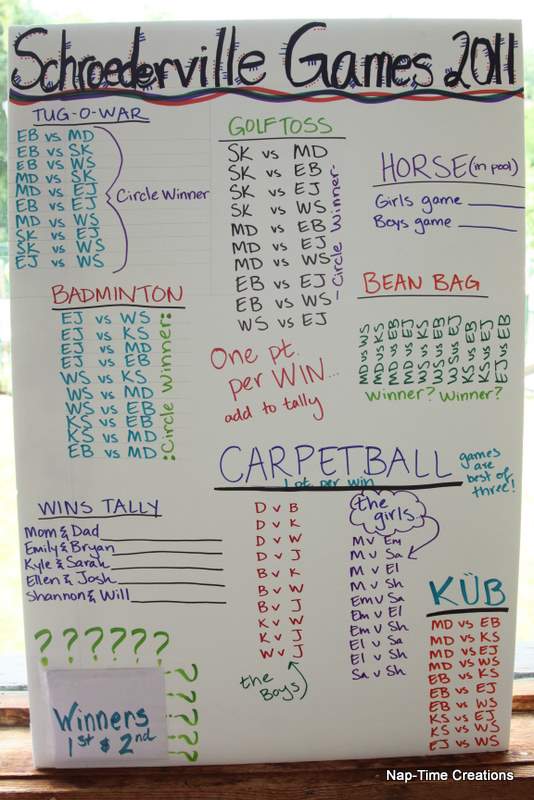 Schroederville Games 2011
TUG-O-WAR
EB vs MD
EB vs SK
EB vs WS
MD vs SK
MD vs EJ
EB vs EJ
MD vs WS
SK vs EJ
SK vs WS
EJ vs WS
Circle Winner
GOLF TOSS
SK vs MD
SK vs EB
SK vs EJ
SK vs WS
MD vs EB
MD vs EJ
MD vs WS
EB vs EJ
EB vs WS
WS vs EJ
-Circle Winner-
HORSE (in pool)
Girls game
Boys game
BADMINTON
EJ vs WS
EJ vs KS
EJ vs MD
EJ vs EB
WS vs KS
WS vs MD
WS vs EB
KS vs EB
KS vs MD
EB vs MD
:Circle Winner:
BEAN BAG
MD vs WS
MD vs KS
MD vs EB
MD vs EJ
WS vs KS
WS vs EB
WS vs EJ
KS vs EB
KS vs EJ
EJ vs EB
Winner? Winner?
One pt.
per WIN...
add to tally
CARPETBALL
1 pt. per win
games
are
best of
three!
D v B
D v K
D v W
D v J
B v K
B v W
B v J
K v W
K v J
W v J
the
boys
the
girls
M v Em
M v Sa
M v El
M v Sh
Em v Sa
Em v El
Em v Sh
El v Sa
El v Sh
Sa v Sh
WINS TALLY
Mom & Dad
Emily & Bryan
Kyle & Sarah
Ellen & Josh
Shannon & Will
KÜB
MD vs EB
MD vs KS
MD vs EJ
MD vs WS
EB vs KS
EB vs EJ
EB vs WS
KS vs EJ
KS vs WS
EJ vs WS
? ? ? ? ? ?
?
?
?
?
Winners
1st & 2nd
Nap-Time Creations